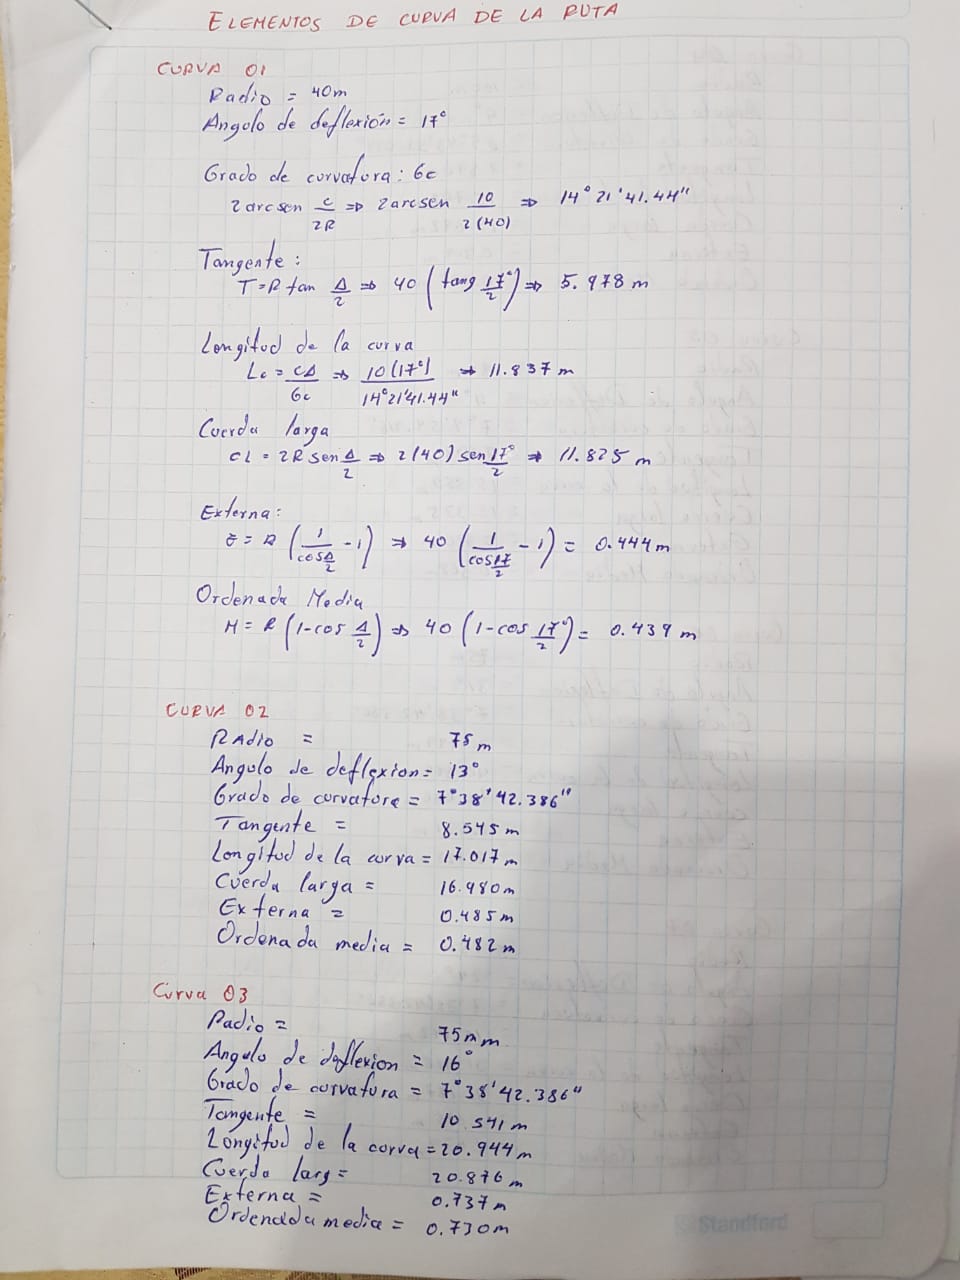 ELEMENTOS DE CURVA DE LA RUTA
CURVA 01
Radio = 40m
Angolo de deflexión = 17°
Grado de curvatura: Gc
2 arcsen c/2R ⇒ 2 arcsen 10/2(40) ⇒ 14° 21' 41.44"
Tangente:
T = R tan Δ/2 ⇒ 40 (tang 17°/2) ⇒ 5.978 m
Longitud de la curva
Lc = cΔ/Gc ⇒ 10(17°)/14°21'41.44" ⇒ 11.837 m
Cuerda larga
CL = 2R sen Δ/2 ⇒ 2(40) sen 17°/2 ⇒ 11.825 m
Externa:
E = R (1/cos Δ/2 - 1) ⇒ 40 (1/cos 17/2 - 1) = 0.444 m
Ordenada Media
M = R (1-cos Δ/2) ⇒ 40 (1-cos 17°/2) = 0.439 m
CURVA 02
RAdio = 75 m
Angulo de deflexion = 13°
Grado de curvatura = 7°38'42.386"
Tangente = 8.545 m
Longitud de la curva = 17.017 m
Cuerda larga = 16.980 m
Externa = 0.485 m
Ordenada media = 0.482 m
Curva 03
Radio = 75m m
Angulo de deflexion = 16°
Grado de curvatura = 7°38'42.386"
Tangente = 10.541 m
Longitud de la curva = 20.944 m
Cuerda larg = 20.876 m
Externa = 0.737 m
Ordenada media = 0.730 m
Standford